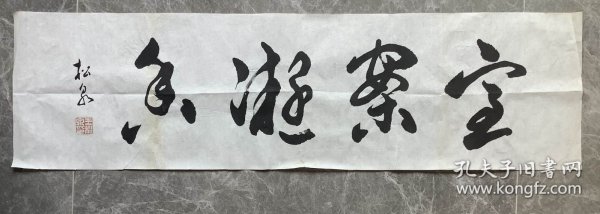 室案凝香
松泉
孔夫子旧书网
www.kongfz.com